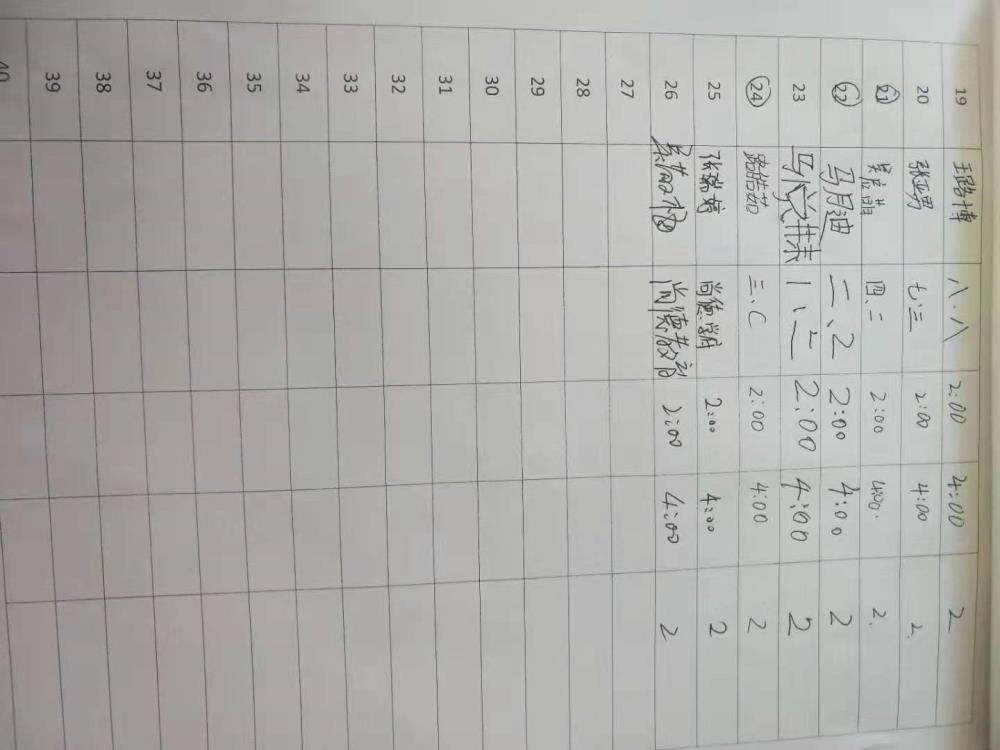 19 王路博 八.八 2:00 4:00 2
20 张亚男 七.三 2:00 4:00 2
21 四.二 2:00 4:00. 2.
22 马月迪 二、2 2:00 4:00 2
23 1、二 2:00 4:00 2
24 路皓茹 三.C 2:00 4:00 2
25 张瑞婷 尚德 2:00 4:00 2
26 尚德教育 2:00 4:00 2
27
28
29
30
31
32
33
34
35
36
37
38
39
40